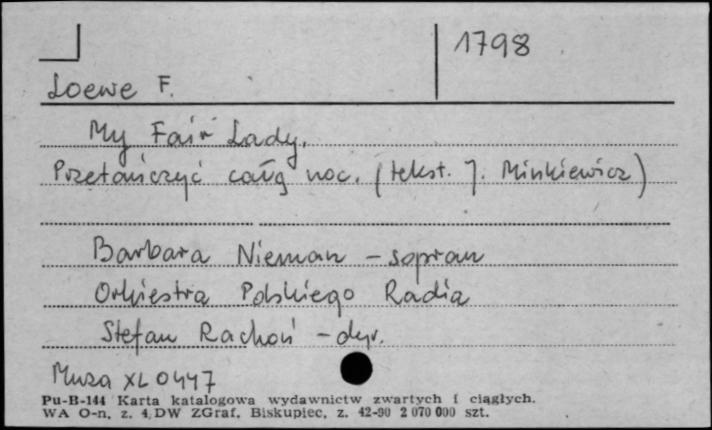 1798
Loewe F.
My Fair Lady.
Przetańczyć całą noc. (tekst. J. Minkiewicz)
Barbara Nieman – sopran
Orkiestra Polskiego Radia
Stefan Rachoń – dyr.
Muza XL 0447
Pu-B-144 Karta katalogowa wydawnictw zwartych i ciągłych.
WA O-n, z. 4, DW ZGraf. Biskupiec, z. 42-90 2 070 000 szt.